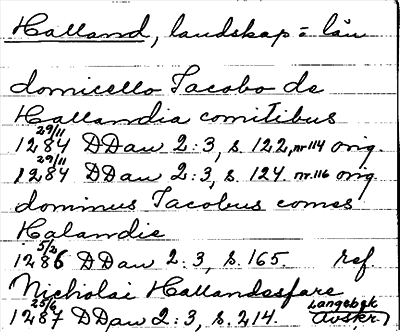 Halland, landskap = län
domicello Jacobo de
Hallandia comitibus
29/11
1284 DDan 2:3, s. 122, nr 114 orig.
29/11
1284 DDan 2:3, s. 124. nr. 116 orig
dominus Jacobus comes
Halandie
1286 DDan 2:3, s. 165. ref
Nicholai Hallandsfare
25/6 Langebek
1287 DDan 2:3, s. 214. Avskr.